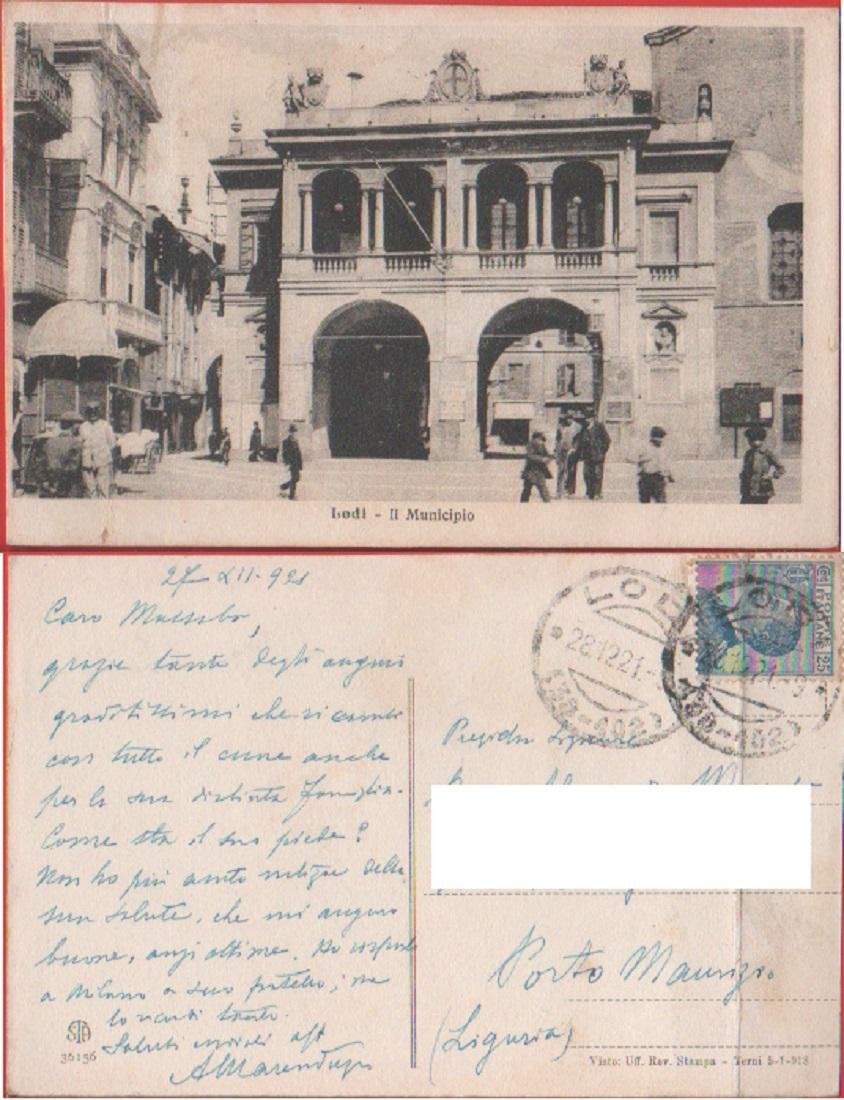 Lodi - Il Municipio
27 XII - 921
Caro
grazie tante degli auguri
graditissimi che ricambio
con tutto il cuore anche
per la sua distinta famiglia.
Come sta il suo piede?
Non ho più avuto notizie della
sua salute, che mi auguro
buone, anzi ottime. Ho
a Milano a suo fratello; me
lo saluti tanto.
Saluti aff
STA
36136
LODI
28.12.21
(30-402)
POSTE
ITALIANE
25
Porto Maurizio
(Liguria)
Visto: Uff. Rev. Stampa - Terni 5-1-918